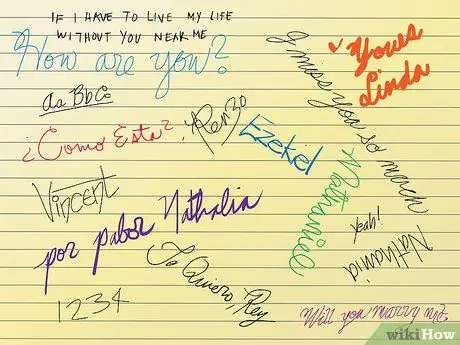 IF I HAVE TO LIVE MY LIFE
WITHOUT YOU NEAR ME
How are you?
Yours
Linda
I miss you so much
aa Bb Cc
Renzo
¿Como Esta?,
Ezekiel
Nathaniel
Vincent
por pabor Nathalia
yeah!
Nathania
To Quiero, Rey
1234
Will you marry me.
wikiHow